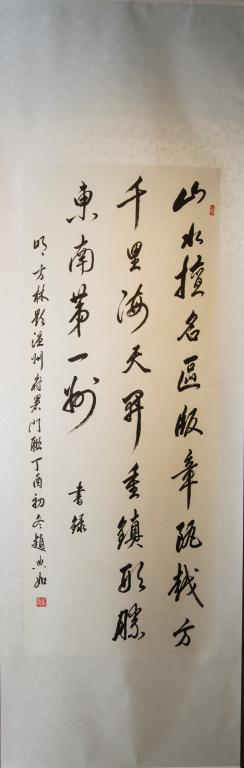 山水擅名區版章甌越方
千里海天開重鎮形勝
東南第一州 書錄
明方林題溫州府署門聯丁酉初冬趙典如